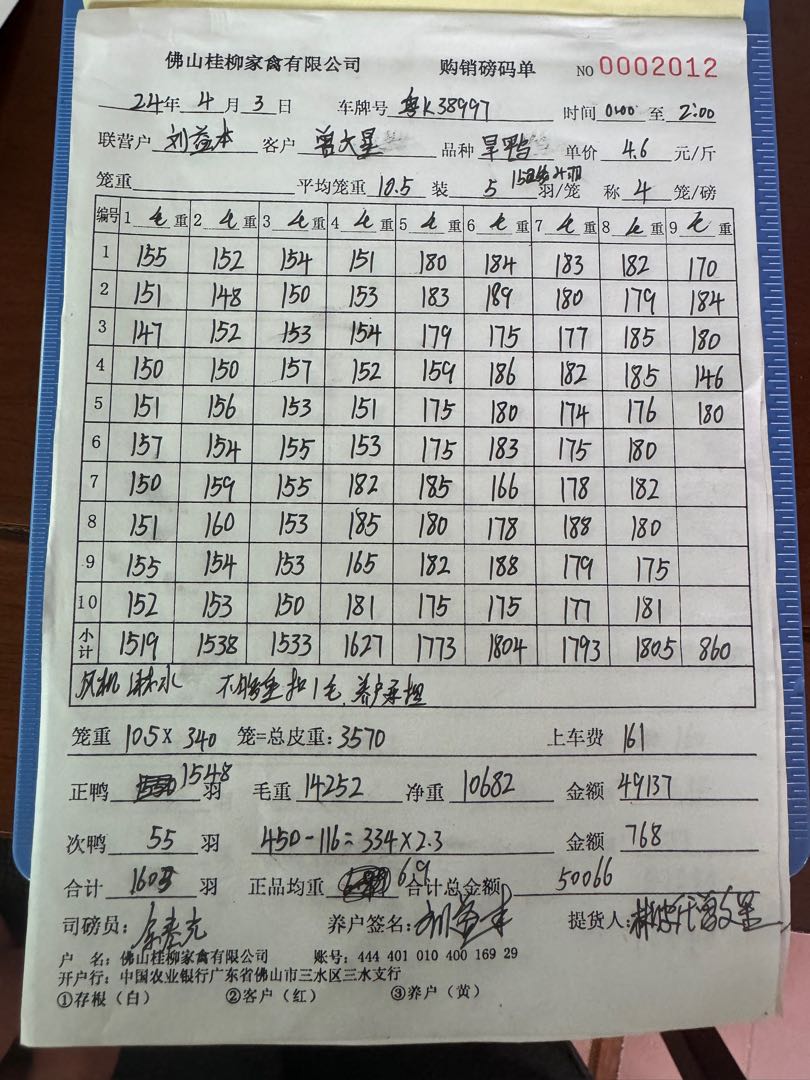 佛山桂柳家禽有限公司 购销磅码单 NO 0002012
24年 4月 3日 车牌号 粤K38997 时间 0:00 至 2:00
联营户 刘益本 客户 曾大星 品种 旱鸭 单价 4.6 元/斤
笼重 平均笼重 10.5 装 5 羽/笼 称 4 笼/磅
编号 1 毛重 2 毛重 3 毛重 4 毛重 5 毛重 6 毛重 7 毛重 8 毛重 9 毛重
1 155 152 154 151 180 184 183 182 170
2 151 148 150 153 183 189 180 179 184
3 147 152 153 154 179 175 177 185 180
4 150 150 157 152 159 186 182 185 146
5 151 156 153 151 175 180 174 176 180
6 157 154 155 153 175 183 175 180
7 150 159 155 182 185 166 178 182
8 151 160 153 185 180 178 188 180
9 155 154 153 165 182 188 179 175
10 152 153 150 181 175 175 177 181
小计 1519 1538 1533 1627 1773 1804 1793 1805 860
风机 淋水 扣1毛,养户承担
笼重 10.5 X 340 笼=总皮重:3570 上车费 161
正鸭 1548 羽 毛重 14252 净重 10682 金额 49137
次鸭 55 羽 450-116=334×2.3 金额 768
合计 1603 羽 正品均重 6.9 合计总金额 50066
司磅员: 养户签名:刘益本 提货人:
户 名:佛山桂柳家禽有限公司 账号:444 401 010 400 169 29
开户行:中国农业银行广东省佛山市三水区三水支行
①存根(白) ②客户(红) ③养户(黄)